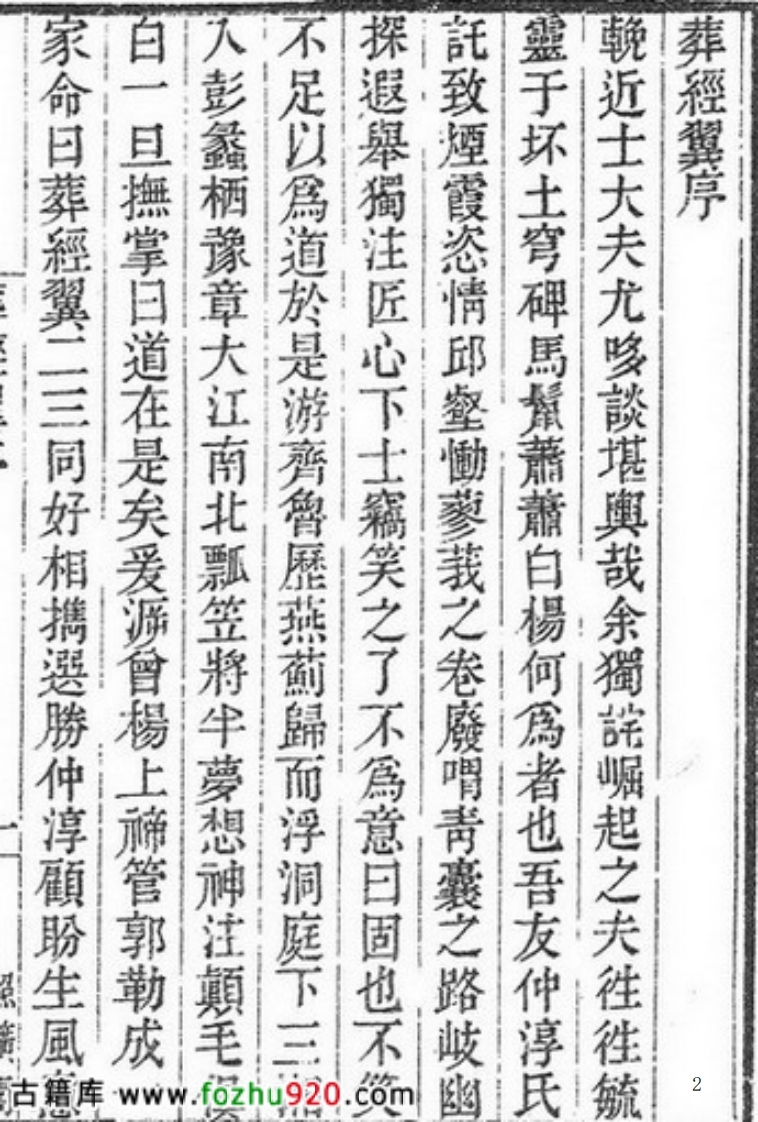 葬經翼序
輓近士大夫尤哆談堪輿哉余獨詫崛起之夫徃徃毓
靈于坏土穹碑馬鬣蕭蕭白楊何爲者也吾友仲淳氏
託致煙霞恣情邱壑慟蓼莪之卷廢喟靑囊之路岐幽
探遐舉獨注匠心下士竊笑之了不爲意曰固也不笑
不足以爲道於是游齊魯歷燕薊歸而浮洞庭下三湘
入彭蠡栖豫章大江南北瓢笠將半夢想神注顛毛
白一旦撫掌曰道在是矣爰泝曾楊上禘管郭勒成
家命曰葬經翼二三同好相擕選勝仲淳顧盼生風
古籍库 www.fozhu920.com
2